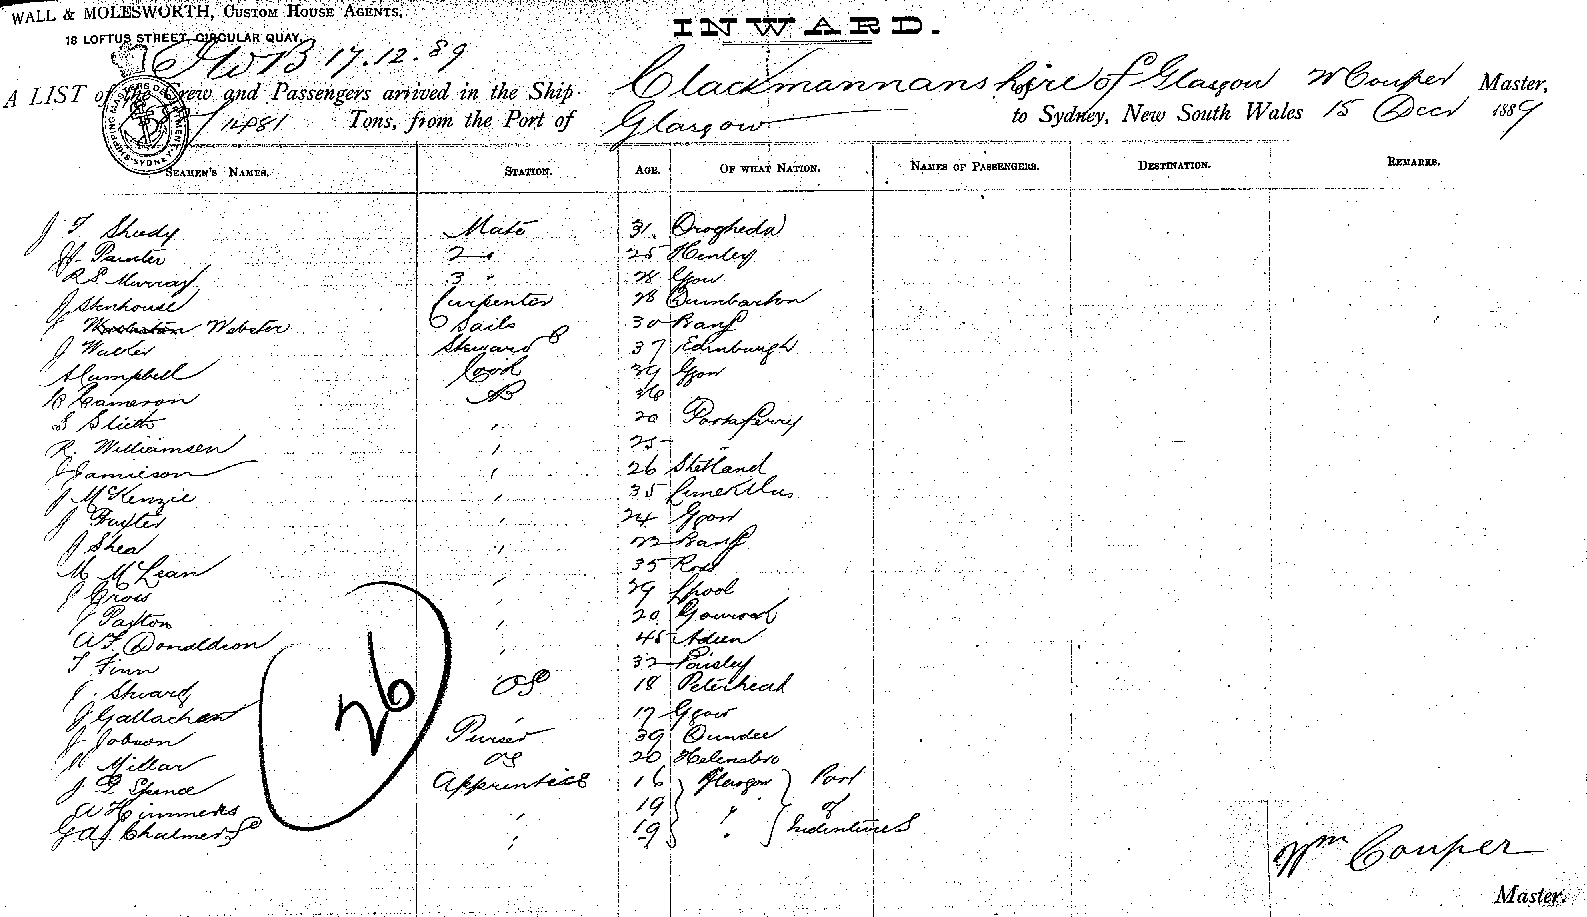 WALL & MOLESWORTH, CUSTOM HOUSE AGENTS,
18 LOFTUS STREET, CIRCULAR QUAY,
INWARD.
17.12.89
A LIST of the Crew and Passengers arrived in the Ship Clackmannanshire of Glasgow W Couper Master,
1481 Tons, from the Port of Glasgow to Sydney, New South Wales 15 Decr 1889
SEAMEN'S NAMES. STATION. AGE. OF WHAT NATION. NAMES OF PASSENGERS. DESTINATION. REMARKS.
J T Sheedy Mate 31 Drogheda
Painter 2 " 25 Henley
R S Murray 3 " 28 Gow
J Stenhouse Carpenter 28 Dumbarton
J Webster Sails 30 Banff
J Walter Steward 37 Edinburgh
A Campbell Cook 39 Gow
C Cameron AB 36
S 20 Portaferry
R. Williamson " 25 "
J Jamieson " 26 Shetland
J McKenzie " 35
J " 24 Gow
J Shea " 22 Banff
M McLean " 35 Ross
J " 29 Lpool
J Paxton " 20 Gourock
A F Donaldson 45
T Finn 32 Paisley
J. OS 18 Peterhead
J Gallacher " 17 Ggow
J Jobson Purser 39 Dundee
Millar OS 20 Helensbro
J G Spence Apprentice 16 Glasgow Port
A Himmers " 19 " of
G A J Chalmers " 19 " Indentures
26
Wm Couper
Master.